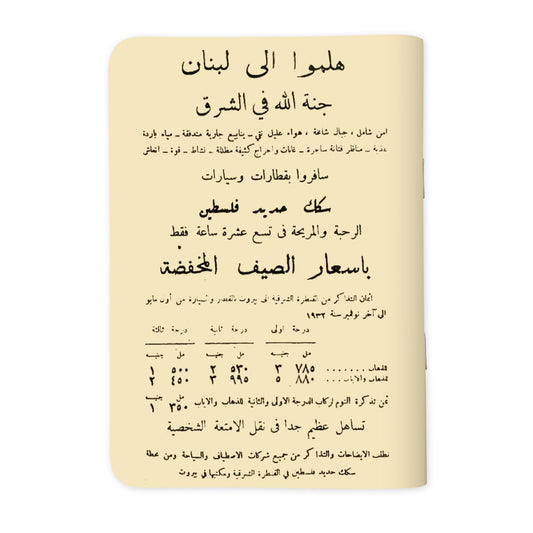 هلموا الى لبنان
جنة الله في الشرق
امن شامل ، جبال شاهقة ، هواء عليل نقي – ينابيع جارية متدفقة – مياه باردة
عذبة – مناظر فتانة ساحرة – غابات واحراج كثيفة مظللة – نشاط – قوة – انعاش
سافروا بقطارات وسيارات
سكك حديد فلسطين
الرحبة والمريحة فى تسع عشرة ساعة فقط
باسعار الصيف المخفضة
اثمان التذاكر من القنطرة الشرقية الى بيروت بالقطار والسيارة من أول مايو
الى آخر نوفمبر سنة ١٩٣٢
درجة اولى درجة ثانية درجة ثالثة
مل جنيه مل جنيه مل جنيه
للذهاب ........ ٧٨٥ ٣ ٥٣٠ ٢ ٥٠٠ ١
للذهاب والاياب .. ٨٨٠ ٥ ٩٩٥ ٣ ٤٥٠ ٢
ثمن تذكرة النوم لركاب الدرجة الاولى والثانية للذهاب والاياب ٣٥٠ ١
تساهل عظيم جدا فى نقل الامتعة الشخصية
تطلب الايضاحات والتذاكر من جميع شركات الاصطياف والسياحة ومن محطة
سكك حديد فلسطين في القنطرة الشرقية ومكتبها في بيروت